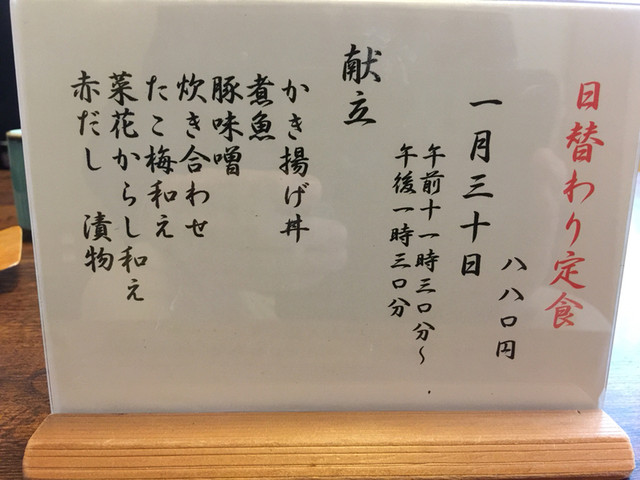 日替わり定食
八八〇円
一月三十日
午前十一時三〇分～
午後一時三〇分
献立
かき揚げ丼
煮魚
豚味噌
炊き合わせ
たこ梅和え
菜花からし和え
赤だし　漬物